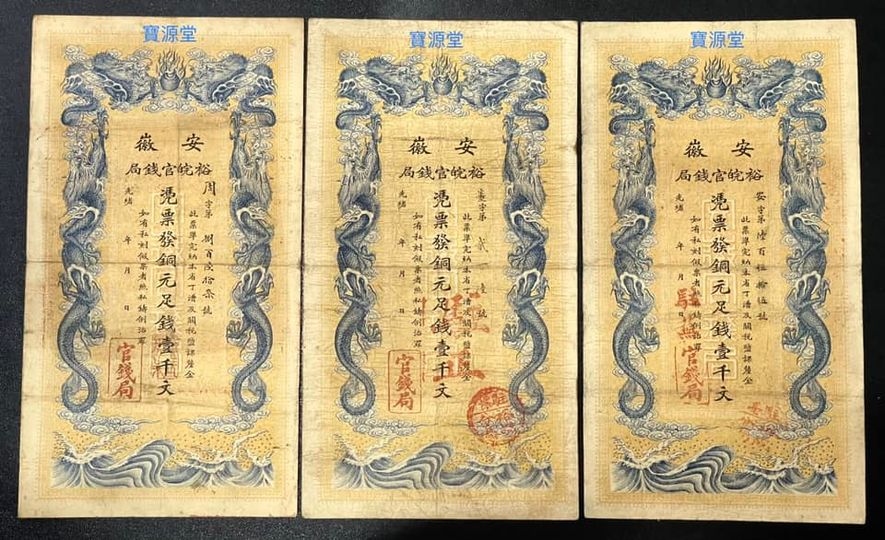 寶源堂
安徽
裕皖官錢局
周字第 捌百陸拾柒號
此票準完納本省丁漕及關稅鹽課釐金
憑票發銅元足錢壹千文
如有私刻假票者照私鑄例治罪
光緒 年 月 日
官錢局
寶源堂
安徽
裕皖官錢局
字第 貳 號
此票準完納本省丁漕及關稅鹽課釐金
憑票發銅元足錢壹千文
如有私刻假票者照私鑄例治罪
光緒 年 月 日
官錢局
寶源堂
安徽
裕皖官錢局
安字第 陸百伍拾伍號
此票準完納本省丁漕及關稅鹽課釐金
憑票發銅元足錢壹千文
如有私刻假票者照私鑄例治罪
光緒 年 月 日
駐蕪
官錢局